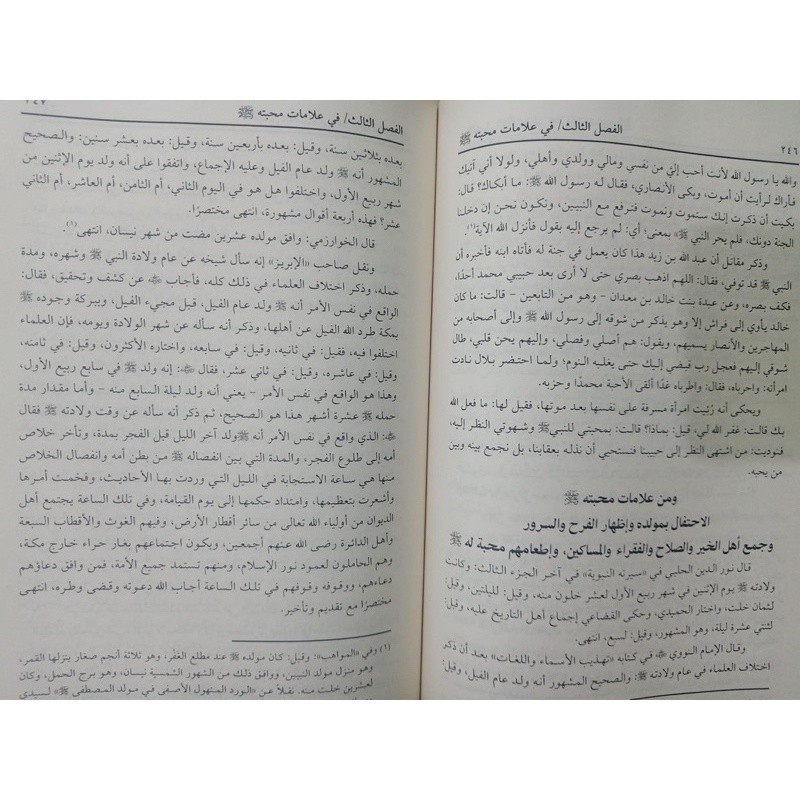 الفصل الثالث/ في علامات محبته ﷺ
٢٤٦
والله يا رسول الله لأنت أحب إليّ من نفسي ومالي وولدي وأهلي، ولولا أني آتيك
فأراك لرأيت أن أموت، وبكى الأنصاري، فقال له رسول الله ﷺ: ما أبكاك؟ قال:
بكيت أن ذكرت إنك ستموت ونموت فترفع مع النبيين، ونكون نحن إن دخلنا
الجنة دونك، فلم يحر النبي ﷺ بمعنى؛ أي: لم يرجع إليه بقول فأنزل الله الآية(١).
وذكر مقاتل أن عبد الله بن زيد هذا كان يعمل في جنة له فأتاه ابنه فأخبره أن
النبي ﷺ قد توفي، فقال: اللهم اذهب بصري حتى لا أرى بعد حبيبي محمد أحدًا،
فكف بصره، وعن عبدة بنت خالد بن معدان - وهو من التابعين - قالت: ما كان
خالد يأوي إلى فراش إلا وهو يذكر من شوقه إلى رسول الله ﷺ وإلى أصحابه من
المهاجرين والأنصار يسميهم، ويقول: هم أصلي وفصلي، وإليهم يحن قلبي، طال
شوقي إليهم فعجل رب قبضي إليك حتى يغلبه النوم؛ ولما احتضر بلال نادت
امرأته: واحرباه، فقال: واطرباه غدًا ألقى الأحبة محمدًا وحزبه.
ويحكى أنه رُئيت امرأة مسرفة على نفسها بعد موتها، فقيل لها: ما فعل الله
بك قالت: غفر الله لي، قيل: بماذا؟ قالت: بمحبتي للنبي ﷺ وشهوتي النظر إليه،
فنوديت: من اشتهى النظر إلى حبيبنا فنستحيي أن نذله بعقابنا، بل نجمع بينه وبين
من يحبه.
ومن علامات محبته ﷺ
الاحتفال بمولده وإظهار الفرح والسرور
وجمع أهل الخير والصلاح والفقراء والمساكين، وإطعامهم محبة له ﷺ
قال نور الدين الحلبي في «سيرته النبوية» في آخر الجزء الثالث: وكانت
ولادته ﷺ يوم الإثنين في شهر ربيع الأول لعشر خلون منه، وقيل: لليلتين، وقيل:
لثمان خلت، واختار الحميدي، وحكى القضاعي إجماع أهل التاريخ عليه، وقيل:
لثنتي عشرة ليلة، وهو المشهور، وقيل: لسبع، انتهى.
وقال الإمام النووي في كتابه «تهذيب الأسماء واللغات» بعد أن ذكر
اختلاف العلماء في عام ولادته ﷺ: والصحيح المشهور أنه ولد عام الفيل، وقيل:
الفصل الثالث/ في علامات محبته ﷺ
٢٤٧
بعده بثلاثين سنة، وقيل: بعده بأربعين سنة، وقيل: بعده بعشر سنين: والصحيح
المشهور أنه ﷺ ولد عام الفيل وعليه الإجماع، واتفقوا على أنه ولد يوم الإثنين من
شهر ربيع الأول، واختلفوا هل هو في اليوم الثاني، أم الثامن، أم العاشر، أم الثاني
عشر؟ فهذه أربعة أقوال مشهورة، انتهى مختصرًا.
قال الخوارزمي: وافق مولده عشرين مضت من شهر نيسان، انتهى(١).
ونقل صاحب «الإبريز» إنه سأل شيخه عن عام ولادة النبي ﷺ وشهره، ومدة
حمله، وذكر اختلاف العلماء في ذلك كله، فأجاب عن كشف وتحقيق، فقال:
الواقع في نفس الأمر أنه ﷺ ولد عام الفيل، قبل مجيء الفيل، وببركة وجوده ﷺ
بمكة طرد الله الفيل عن أهلها، وذكر أنه سأله عن شهر الولادة ويومه، فإن العلماء
اختلفوا فيه، فقيل: في ثانيه، وقيل: في سابعه، واختاره الأكثرون، وقيل: في ثامنه،
وقيل: في عاشره، وقيل: في ثاني عشر، فقال: إنه ولد في سابع ربيع الأول،
وهذا هو الواقع في نفس الأمر - يعني أنه ولد ليلة السابع منه - وأما مقدار مدة
حمله ﷺ عشرة أشهر هذا هو الصحيح، ثم ذكر أنه سأله عن وقت ولادته ﷺ فقال
: الذي واقع في نفس الأمر أنه ﷺ ولد آخر الليل قبل الفجر بمدة، وتأخر خلاص
أمه إلى طلوع الفجر، والمدة التي بين انفصاله ﷺ من بطن أمه وانفصال الخلاص
منها هي ساعة الاستجابة في الليل التي وردت بها الأحاديث، وفخمت أمرها
وأشعرت بتعظيمها، وامتداد حكمها إلى يوم القيامة، وفي تلك الساعة يجتمع أهل
الديوان من أولياء الله تعالى من سائر أقطار الأرض، وفيهم الغوث والأقطاب السبعة
وأهل الدائرة رضى الله عنهم أجمعين، ويكون اجتماعهم بغار حراء خارج مكة،
وهم الحاملون لعمود نور الإسلام، ومنهم تستمد جميع الأمة، فمن وافق دعاؤهم
دعاءهم، ووقوفه وقوفهم في تلك الساعة أجاب الله دعوته وقضى وطره، انتهى
مختصرًا مع تقديم وتأخير.
(١) وفي «المواهب»: وقيل: كان مولده ﷺ عند مطلع الغَفْر، وهو ثلاثة أنجم صغار ينزلها القمر،
وهو منزل مولد النبيين، ووافق ذلك من الشهور الشمسية نيسان، وهو برج الحمل، وكان
لعشرين خلت منه. نقلاً عن «الورد المنهول الأصفى في مولد المصطفى ﷺ» لسيدي